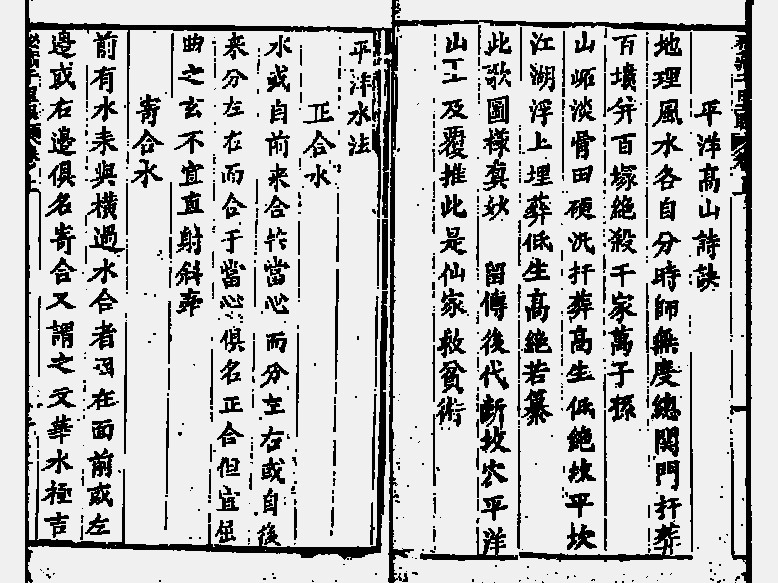 平洋高山詩訣
地理風水各自分時師無度總関門扞葬
百墳弁百塚絕殺千家萬子孫
山嶇淡骨田硬洗扞葬髙生低絕坎平坎
江湖浮上埋葬低生髙絕若纂
此歌圖樣真妙　留傳後代斷坡穴平洋
山工及覆推此是仙家救貧術
平洋水法
正合水
水或自前來合於當心而分左右或自後
來分左右而合于當心俱名正合但宜屈
曲之玄不宜直射斜牽
寄合水
前有水來與橫過水合者 在面前或左
邊或右邊俱名寄合又謂之文華水極吉